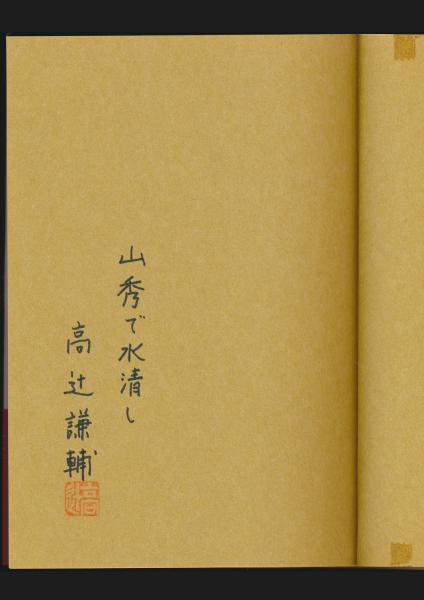 山秀で水清し
高辻謙輔
高辻